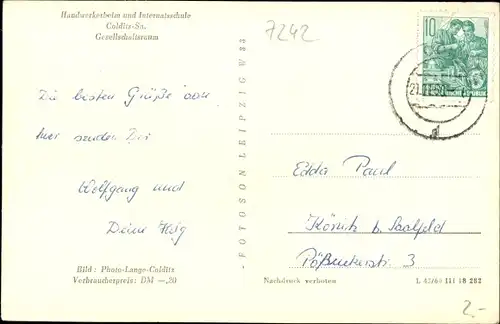 Handwerkerheim und Internatsschule
Colditz-Sa.
Gesellschaftsraum
7242
10
Die besten Grüße von
hier sendet Dir
Wolfgang und
Deine
Edda Paul
Könitz b. Saalfeld
Pößneckerstr. 3
· FOTOSON LEIPZIG W 33 ·
Bild: Photo-Lange-Colditz
Verbraucherpreis: DM —,20
Nachdruck verboten
L 42/60 III 18 282
2.-